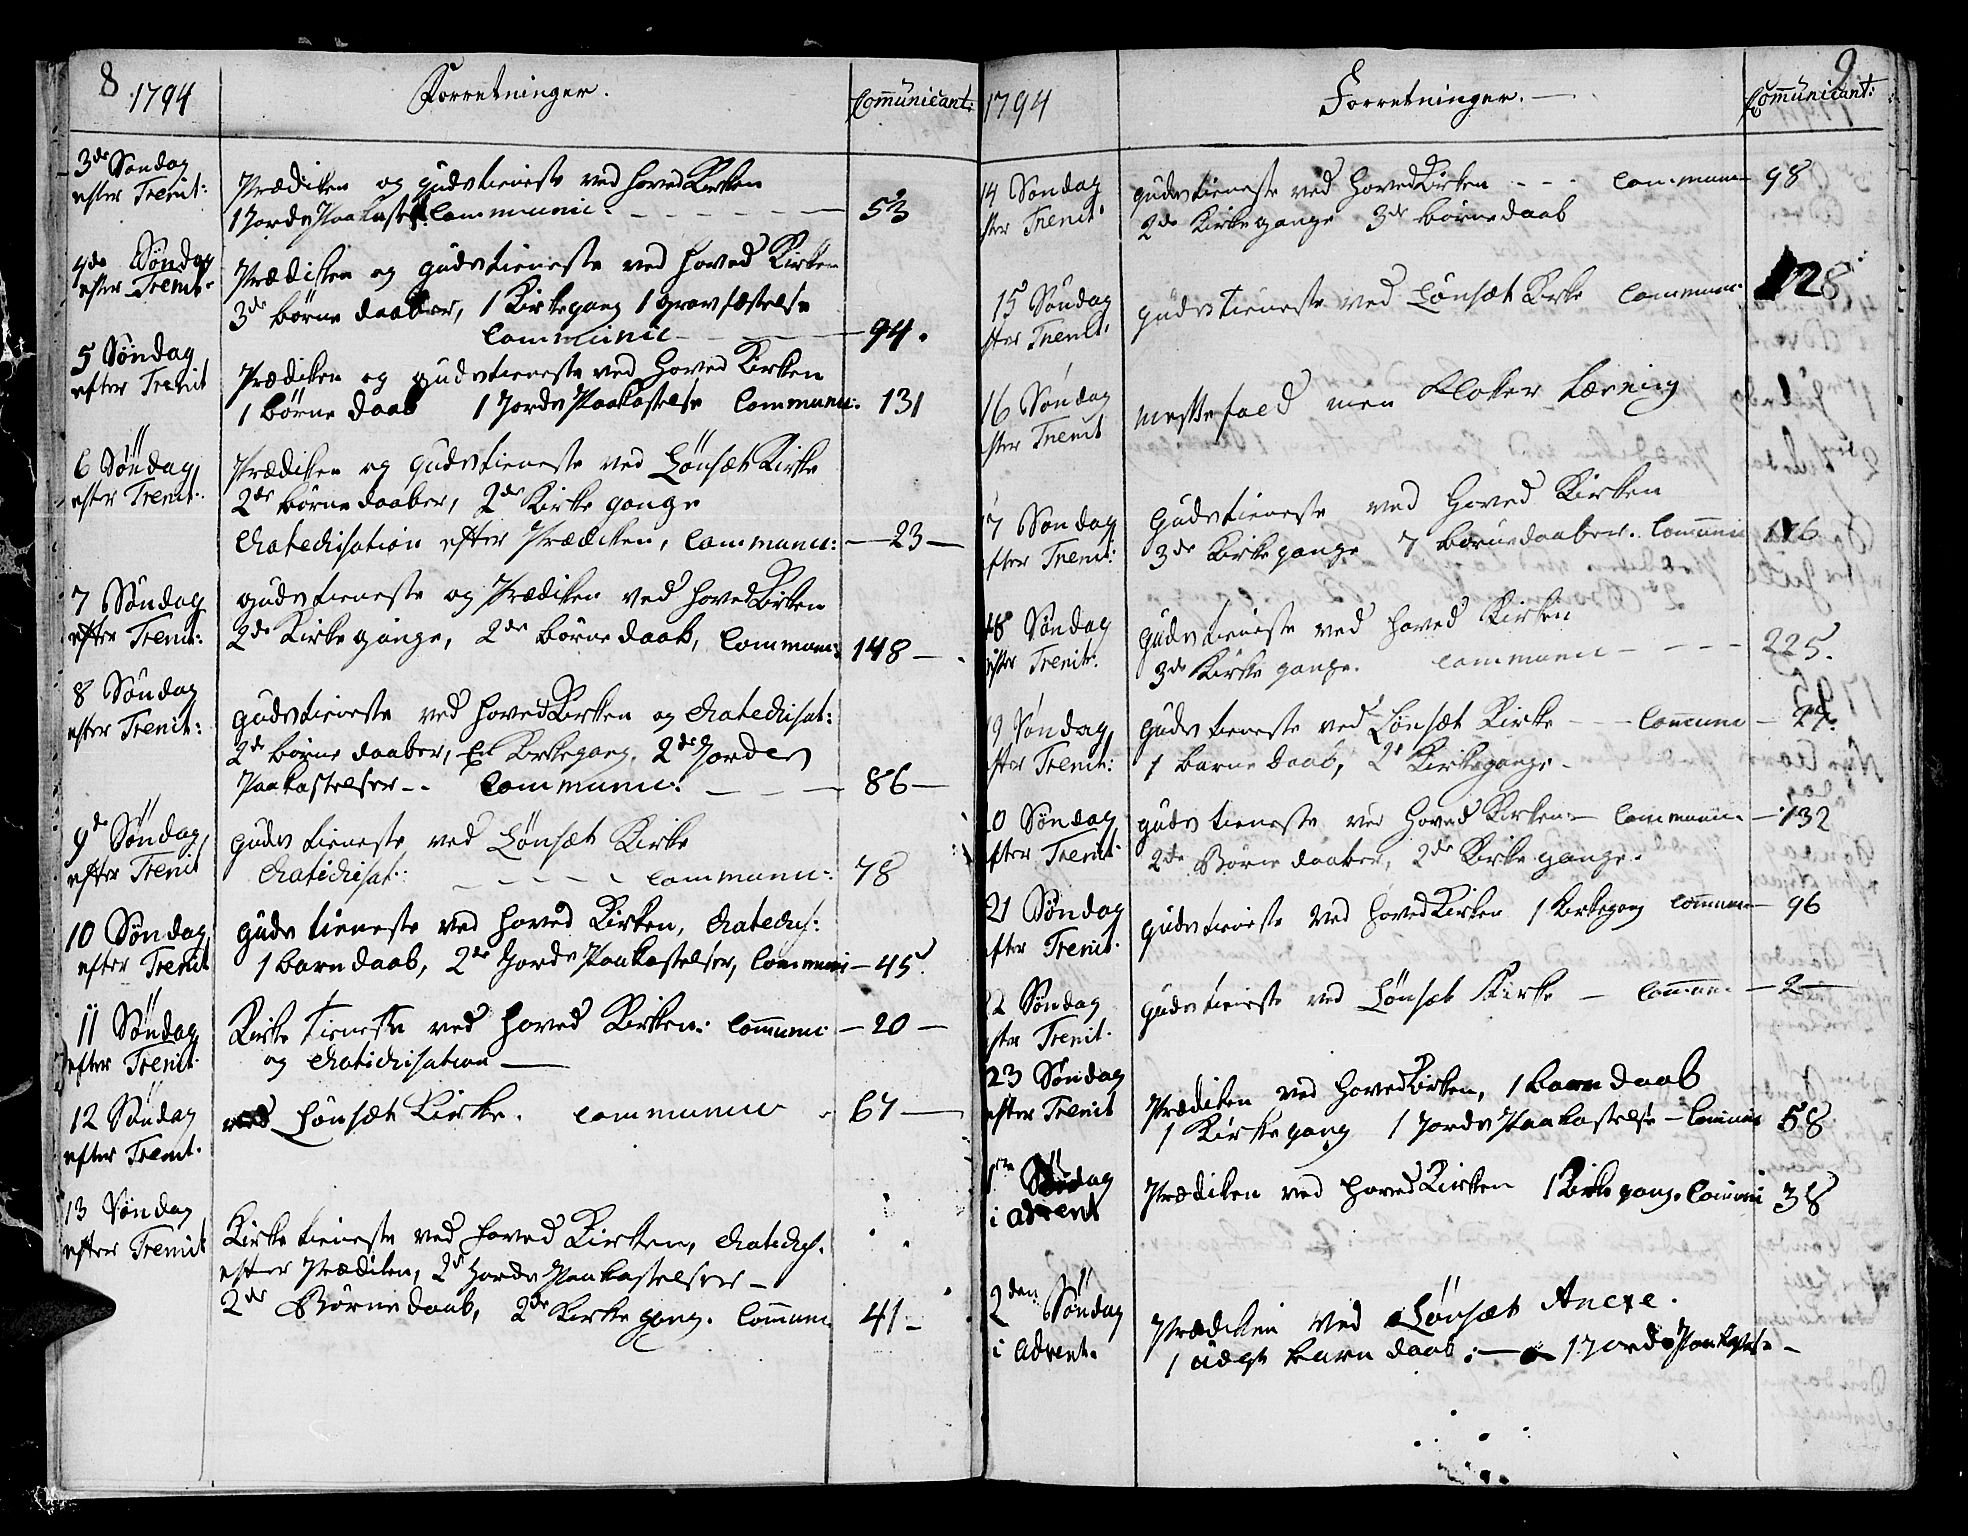 8
1794
Forretninger.
Communicant:
3de Søndag
efter Trenit:
Prædiken og gudstieneste ved HovedKirken
1 Jords Paakastels. Communic:
53
4de Søndag
efter Trenit:
Prædiken og gudstieneste ved Hoved Kirken
3de børne daaber, 1 Kirkegang 1 gravfæstelse
Communic
94.
5 Søndag
efter Trenit
Prædiken og gudstieneste ved Hoved Kirken
1 børne daab 1 Jords Paakastelse Communic:
131
6 Søndag
efter Trenit:
Prædiken og Gudstieneste ved Lönset Kirke
2de børne daaber, 2de Kirke gange
Chatechisation efter Prædiken, Communic:
23
7 Søndag
efter Trenit:
gudstieneste og Prædiken ved HovedKirken
2de Kirke gange, 2de børne daab, Commun:
148
8 Søndag
efter Trenit:
gudstieneste ved HovedKirken og Chatechisat:
2de børne daaber, En Kirkegang, 2de Jordes
Paakastelser -- Communic:
86
9de Søndag
efter Trenit
guds tieneste ved Lönset Kirke
Chatichisat: Communic:
78
10 Søndag
efter Trenit
guds tieneste ved Hoved Kirken, Chatechis:
1 barn daab, 2de Jords Paakastelser, Communic
45.
11 Søndag
efter Trenit.
Kirke Tieneste ved Hoved Kirken: Communic
20
og Chatichisation
12 Søndag
efter Trenit.
ved Lönset Kirke. Communic
67
13 Søndag
efter Trenit
Kirke tieneste ved Hoved Kirken, Chatechs.
efter Prædiken, 2de Jords Paakastelser
2de Børne daab, 2de Kirke gang. Communic
41
9
1794
Forretninger.
Communicant:
14 Søndag
efter Trenit.
gudstieneste ved HovedKirken Commun
98
2de Kirke gange 3de børne daab
15 Søndag
efter Trenit.
gudstieneste ved Lönset Kirke Commun:
128
16 Søndag
efter Trenit
Messefald men Kloker Lærning
17 Søndag
efter Trenit:
Gudstieneste ved Hoved Kirken
3de Kirkegange 7 børne daaber. Communic
176
18 Søndag
efter Trenit:
gudstieneste ved Hoved Kirken
3de Kirke gange. Communic
225.
19 Søndag
efter Trenit:
guds tieneste ved Lönset Kirke Commun
27.
1 barne daab, 2de Kirkegange
20 Søndag
efter Trenit
guds tieneste ved Hoved Kirken Communic
132
2de Børne daaber, 2de Kirke gange.
21 Søndag
efter Trenit.
gudstieneste ved HovedKirken 1 Kirkegang Commun
96
22 Søndag
efter Trenit.
gudstieneste ved Lönset Kirke Commun
2
23 Søndag
efter Trenit
Prædiken ved HovedKirken, 1 barn daab
1 Kirke gang 1 Jords Paakastelse Communic
58
1ste Søndag
i advent
Prædiken ved HovedKirken 1 Kirke gang. Communi
38
2den Søndag
i Advent.
Prædiken ved Lönset Anexe.
1 barn daab 1 Jords Paakastelse